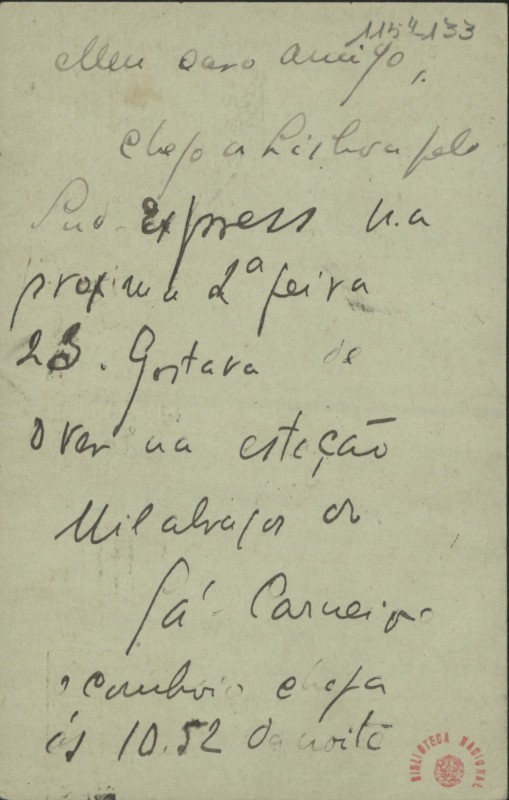 115⁴-133
Meu caro amigo,
chego a Lisboa pelo
Sud-Express na
proxima 2ª feira
23. Gostava de
o ver na estação
Mil abraços do
Sá-Carneiro
o comboio chega
ás 10.52 da noite
BIBLIOTECA NACIONAL